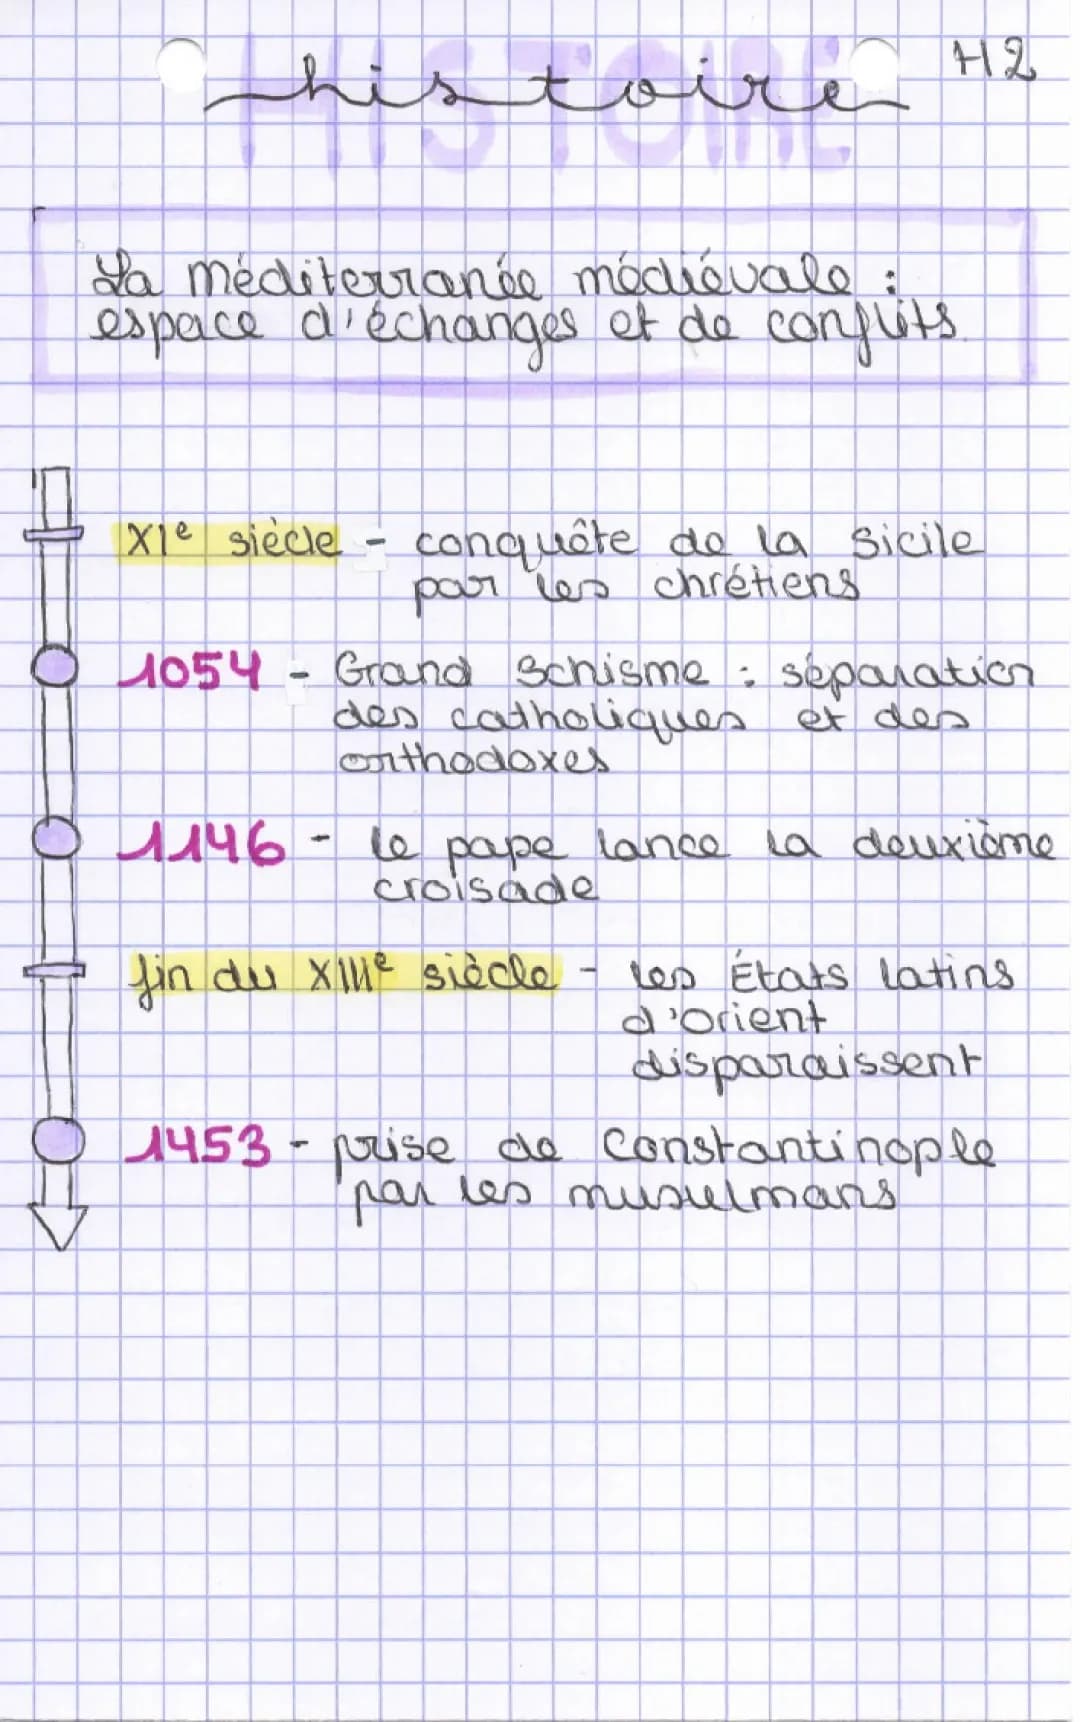 HISTOIRE
histoire
H2
La méditerranée médiévale :
espace d'échanges et de conflits.
XIe siècle - conquête de la Sicile
par les chrétiens
1054 - Grand Schisme : séparation
des catholiques et des
orthodoxes
1146 - le pape lance la deuxième
croisade
fin du XIIIe siècle - les États latins
d'Orient
disparaissent
1453 - prise de Constantinople
par les musulmans